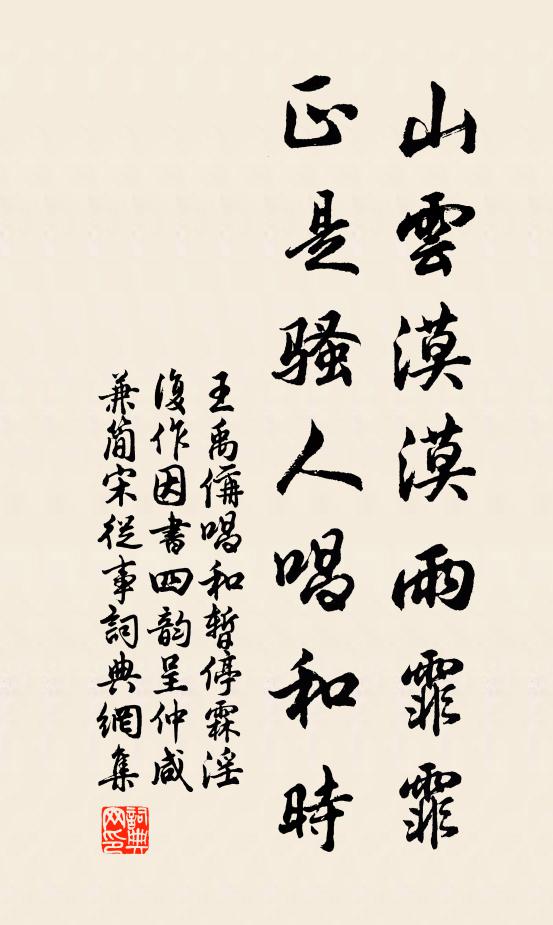 山雲漠漠雨霏霏
正是騷人唱和時
王禹偁唱和暫停霖淫
復作因書四韵呈仲咸
兼簡宋從事詞典網集
詞典
网印